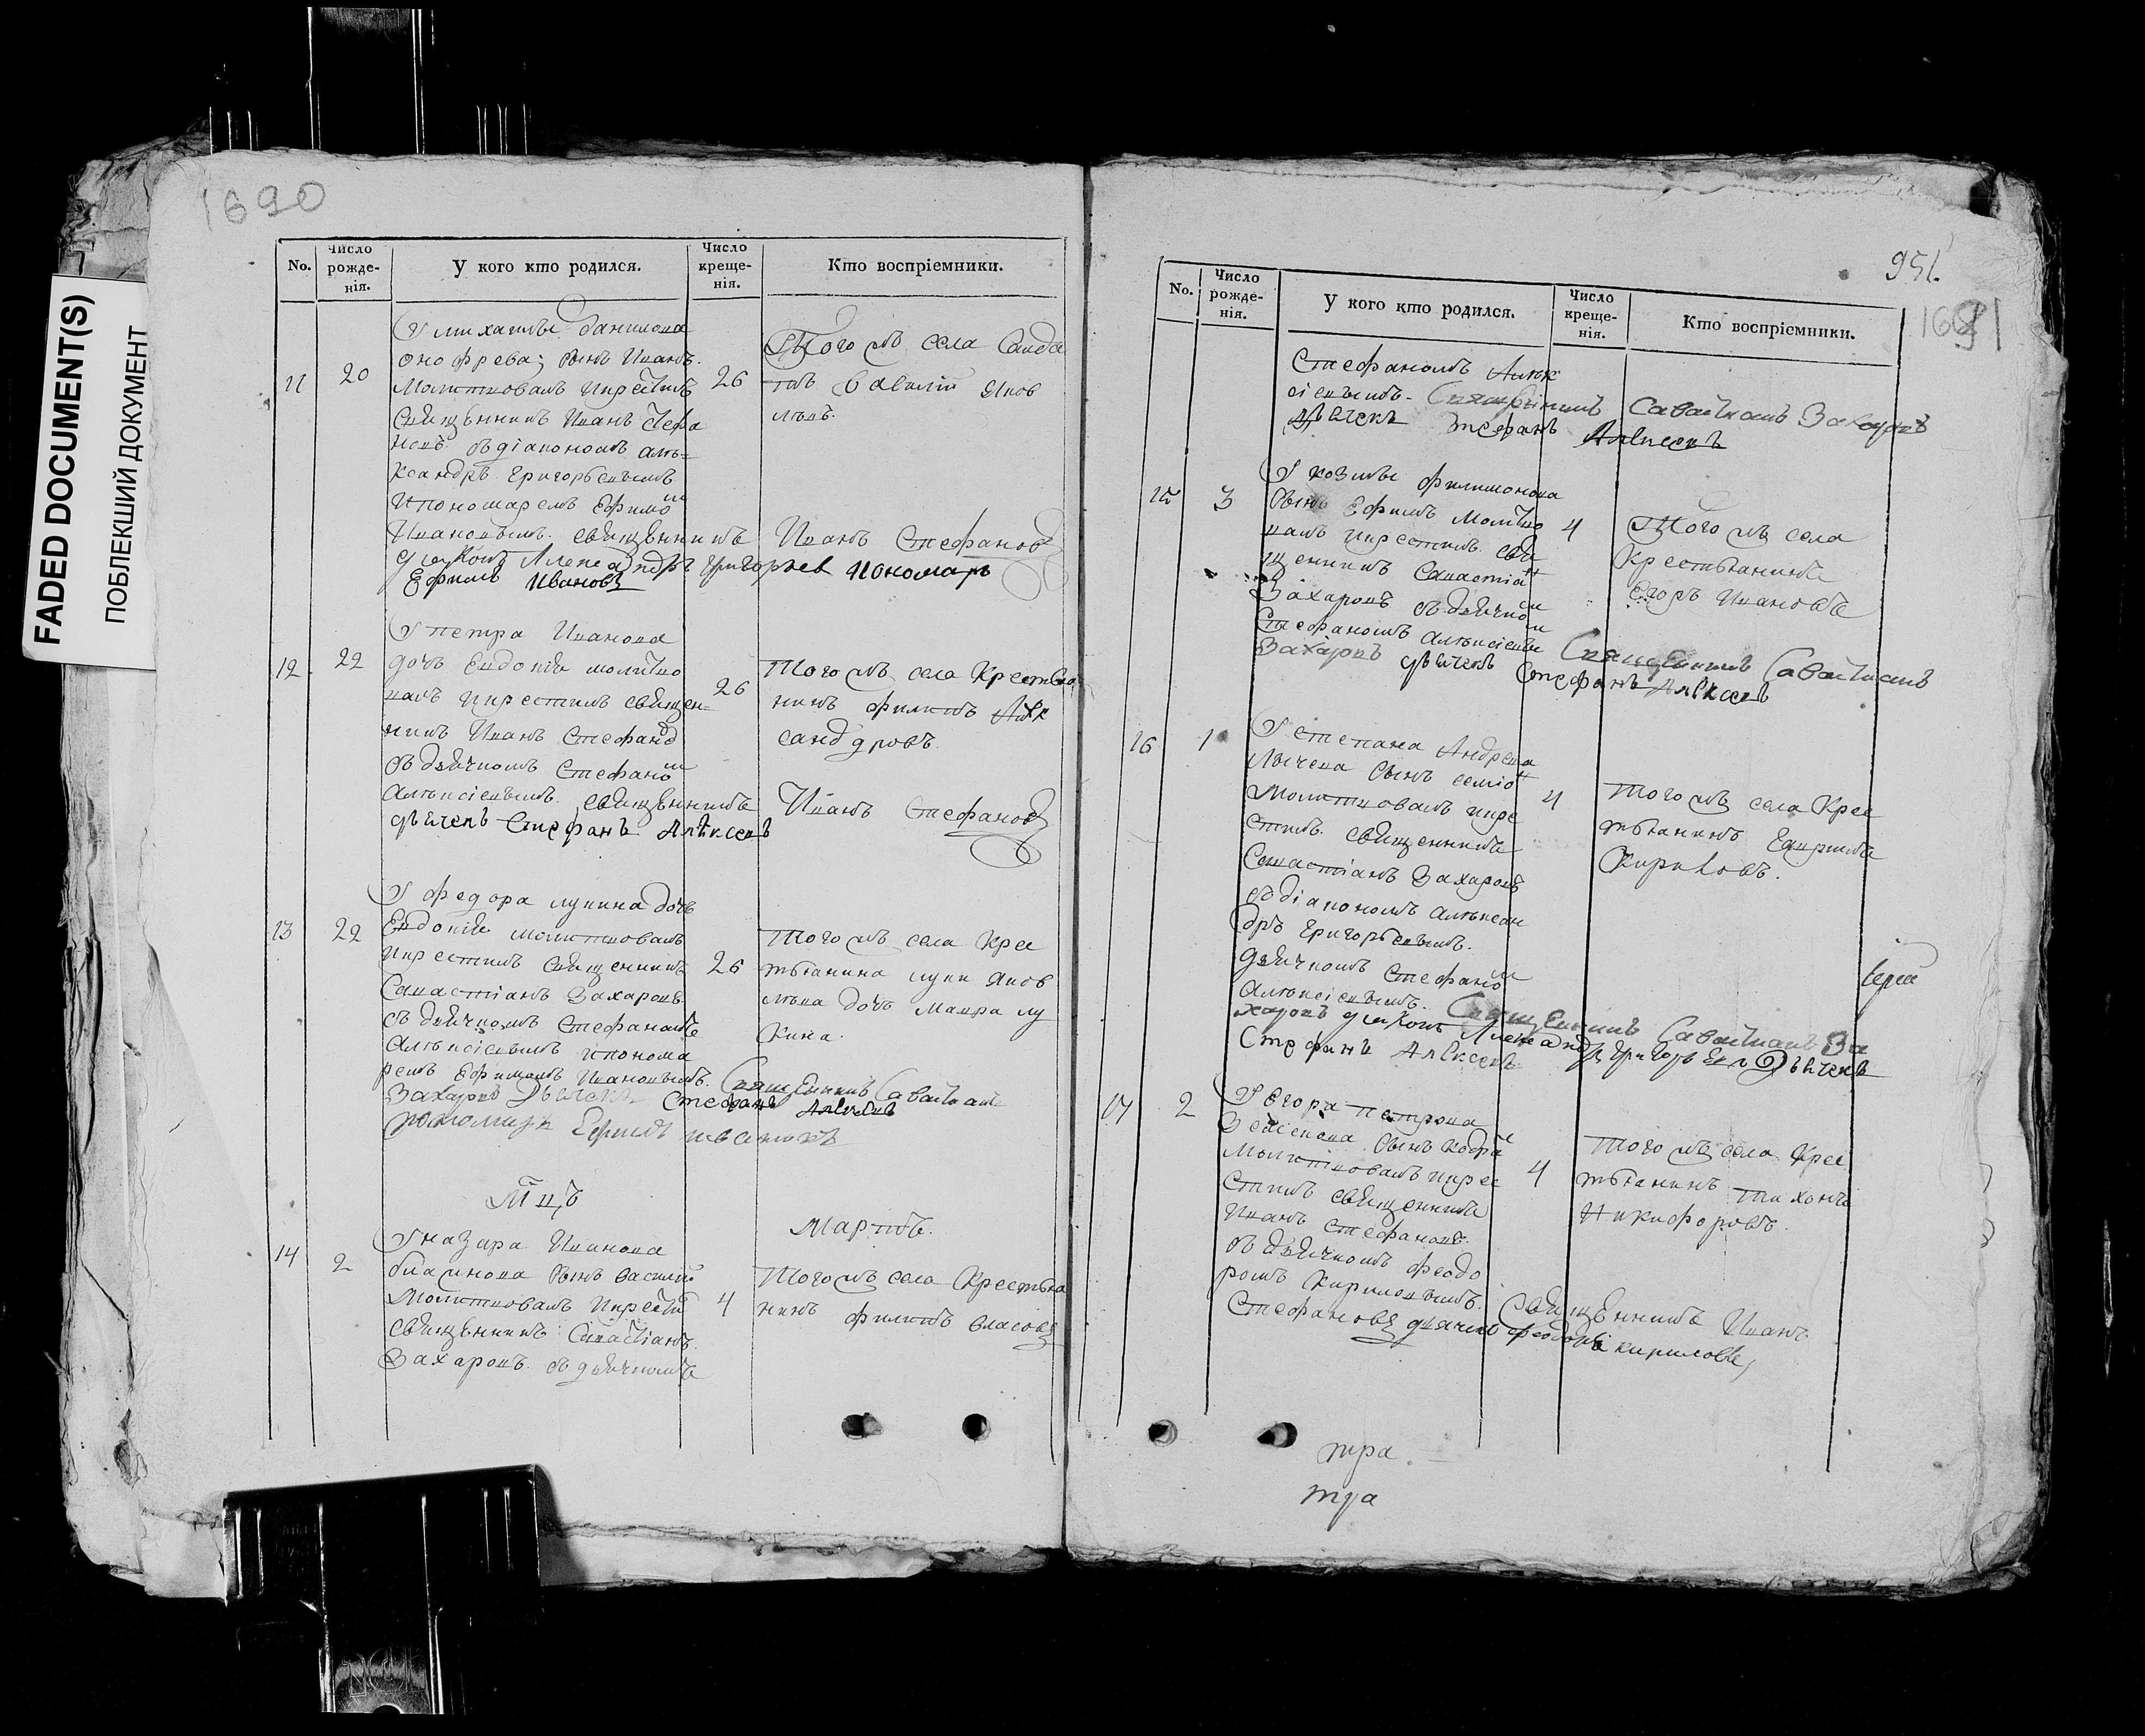 FADED DOCUMENT(S)
ПОБЛЕКШИЙ ДОКУМЕНТ
1690
No.
Число рожде-нія.
У кого кто родился.
Число креще-нія.
Кто воспріемники.
11
20
У михаилы данилова
онофрева; сынъ Иванъ.
Молитвовалъ икрестилъ
Священникъ Иванъ Стефа
новъ. съдіакономъ алѣ=
ксандръ григорьевымъ
ипономаремъ Ефимо м
Ивановымъ. священникъ Иванъ Стефановъ
диаконъ Александръ григорьев пономарь
Ефимъ Ивановъ
26
Того жъ села
Савелій Яков
лѣвъ.
12
22
У петра Иванова
дочь Евдокія молитво
валъ икрестилъ священ=
никъ Иванъ Стефанов
съ дьячкомъ Стефано м
алѣксіевымъ. священникъ Иванъ Стефановъ
дьячекъ Стефанъ Алѣксеевъ
26
Того жъ села Крестья
нинъ филипъ Алѣк
сандровъ.
13
22
У федора лукина дочь
Евдокія молитвовалъ
икрестилъ священникъ
Савастіанъ Захаровъ
съ дьячкомъ Стефаномъ
Алѣксіевымъ ипонома
ремъ Ефимомъ Ивановымъ. Священникъ Саватиан
Захаровъ Дьячекъ Стефанъ Алѣксеевъ
пономарь Ефимъ ивановъ
26
Того жъ села Крес
тьянина луки яков
лѣва дочь мавра лу
кина.
Мцъ
Мартъ.
14
2
У назара Иванова
сынъ василій
Молитвовалъ икрести
священникъ Савастіанъ
Захаровъ. съ дьячкомъ
4
Того жъ села Крестья
нинъ филипъ власовъ
951.
1691
No.
Число рожде-нія.
У кого кто родился.
Число креще-нія.
Кто воспріемники.
Стефаномъ Алѣк
сіевымъ. Священникъ Саватианъ Захаровъ
дьячекъ Стефанъ Алѣксеевъ
15
3
У козмы филимонова
сынъ Ефимъ молитво
валъ икрестилъ. свя
щенникъ Савастіа н
Захаровъ съ дьячко м
Стефаномъ алѣксіевы Священникъ Саватианъ
Захаровъ дьячекъ Стефанъ Алѣксеевъ
4
Того жъ села
Крестьянинъ
Егоръ Ивановъ
16
1
У степана Андрева
лычева сынъ семіо н
Молитвовалъ икре
стилъ. священникъ
Савастіанъ Захаровъ
съ діакономъ алѣксан
дръ григорьевымъ.
дьячкомъ Стефано м
Алѣксіевымъ. Священникъ Саватианъ За
харовъ диаконъ Александръ григорьевъ Дьячекъ
Стефанъ Алѣксеевъ
4
Того жъ села Крес
тьянинъ Гаврилъ
Кириловъ.
17
2
У Егора петрова
сынъ
Молитвовалъ икрес
стилъ священникъ
Иванъ стефановъ.
съ дьячкомъ феодо
ромъ Кириловымъ. Священникъ Иванъ
Стефановъ дьячекъ феодоръ кириловъ,
4
Того жъ села Крес
тьянинъ тихонъ
Никифоровъ.
тра.
тра